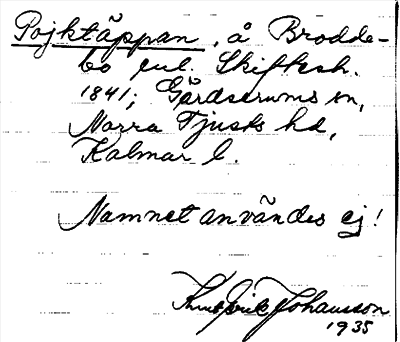 Pojktäppan, å Brodde-
bo enl. Skifkesh.
1841; Gärdserums sn,
Norra Tjusts hd,
Kalmar l.
Namnet användes ej!
Knut Erik Johansson
1935